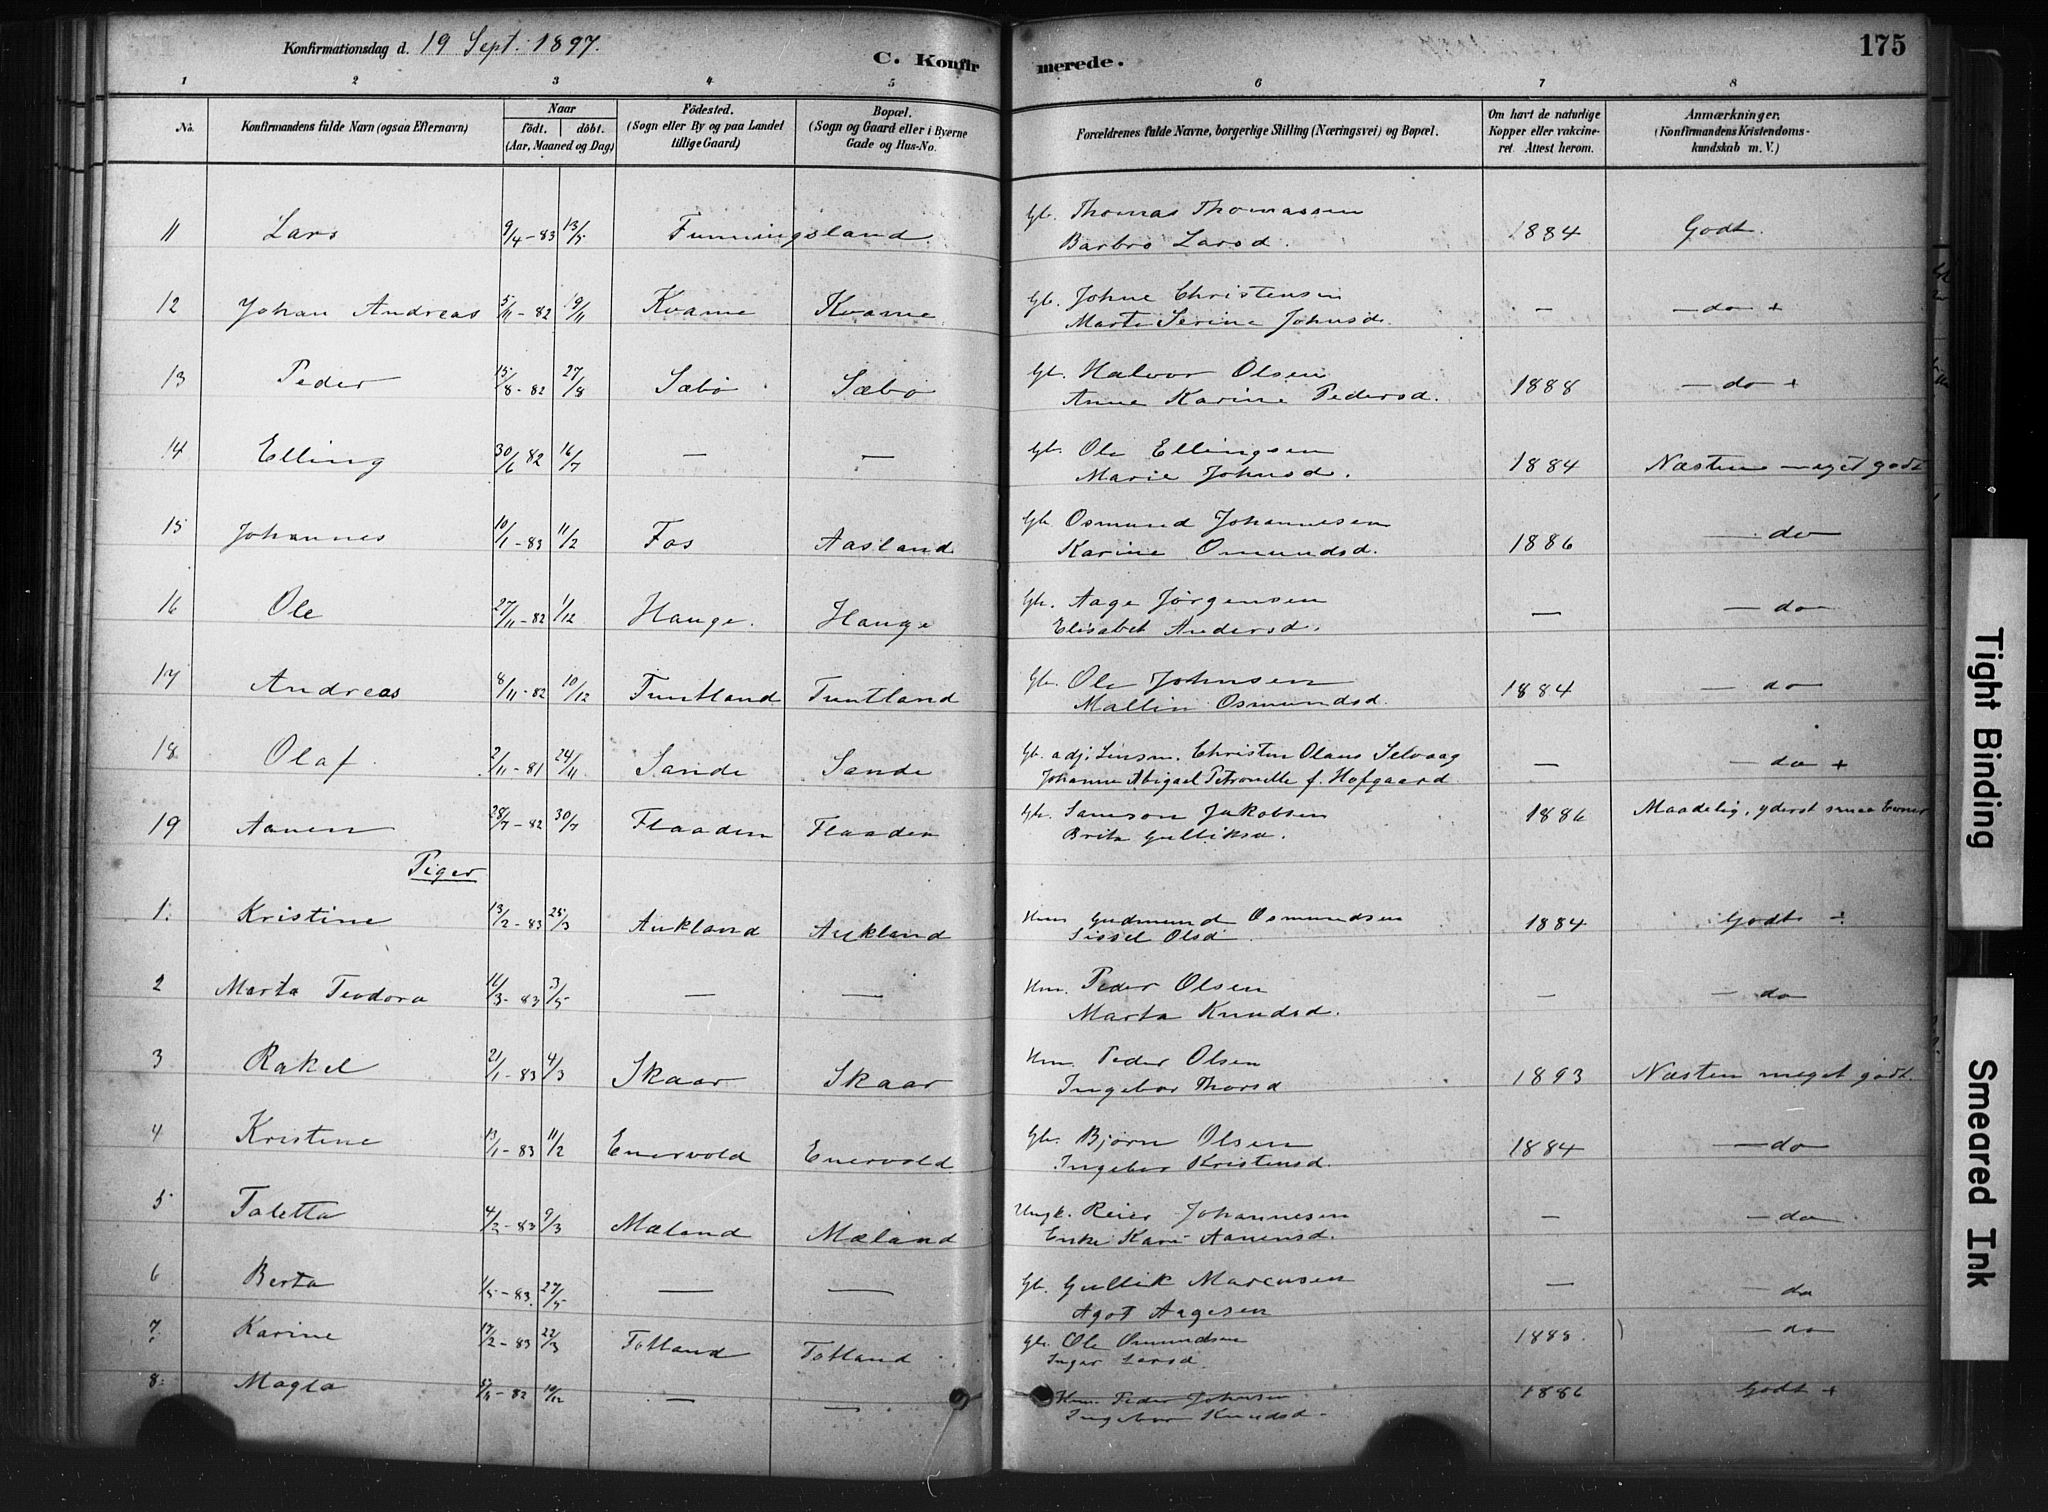 Konfirmationsdag d. 19 Sept. 1897.
C. Konfir merede.
175
1 2 3 4 5 6 7 8
No. Konfirmandens fulde Navn (ogsaa Efternavn) Naar födt. döbt. (Aar, Maaned og Dag) Födested. (Sogn eller By og paa Landet tillige Gaard) Bopæl. (Sogn og Gaard eller i Byerne Gade og Hus-No. Forældrenes fulde Navne, borgerlige Stilling (Næringsvei) og Bopæl. Om havt de naturlige Kopper eller vakcineret. Attest herom. Anmærkninger. (Konfirmandens Kristendomskundskab m. V.)
11 Lars 9/4-83 13/5 Funningsland. Gb. Thomas Thomassen 1884 Godt.
Barbro Larsd.
12 Johan Andreas 5/11-82 19/11 Kvame Kvame Gb. Johne Christensen — — do +
Marte Serine Johnsd.
13 Peder 15/8-82 27/8 Sæbø Sæbø Gb. Halvor Olsen 1888 — do +
Anne Karine Pedersd.
14 Elling 30/6 82 16/7 — — Gb. Ole Ellingsen 1884 Næsten meget godt
Marie Johnsd.
15 Johannes 10/1-83 11/2 Fos Aasland Gb. Osmund Johannesen 1886 — do
Karine Omundsd.
16 Ole 27/11-82 1/12 Hauge. Hauge Gb. Aage Jørgensen — — do
Elisabet Andersd.
17 Andreas 8/11-82 10/12 Tuntland Tuntland Gb. Ole Johnsen 1884 — do
Mallin Osmundsd.
18 Olaf 2/11-81 24/11 Sande Sande Gb. adj. Linsm. Christen Olaus Selvaag — — do +
Johanne Abigael Petronelle f. Hofgaard
19 Aanen 28/7-82 30/7 Flaaden Flaaden Gb. Samson Jakobsen 1886 Maadelig, yderst smaa Evner
Brita Gulliksd.
Piger
1. Kristine 13/2-83 25/3 Aukland Aukland Hm. Gudmund Osmundsen 1884 Godt +
Sissel Olsd.
2 Marta Teodora 16/3-83 3/5 — — Hm. Peder Olsen — — do
Marta Knudsd.
3 Rakel 21/1-83 4/3 Skaar Skaar Hm. Peder Olsen 1893 Næsten meget godt.
Ingebor Thorsd
4 Kristine 13/1-83 11/2 Enervold Enervold Gb. Bjørn Olsen 1884 — do
Ingebor Kristensd.
5 Taletta 4/2-83 9/3 Mæland Mæland Ungk. Reier Johannesen — — do
Enke Kari Aanensd.
6 Berta 1/5-83 27/5 — — Gb. Gullik Marcusen — — do
Agot Aagesen
7. Karine 17/2-83 22/3 Totland Totland Gb. Ole Omundsen 1885. — do
Inger Larsd.
8. Magla — — Hm. Peder Johnsen 1886 Godt +
Ingebor Knudsd.
Tight Binding
Smeared Ink